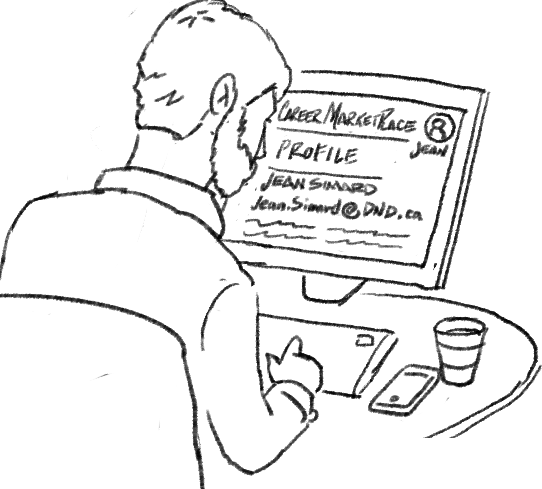 CAREER MARKETPLACE
JEAN
PROFILE
JEAN SIMARD
Jean.Simard@DND.ca